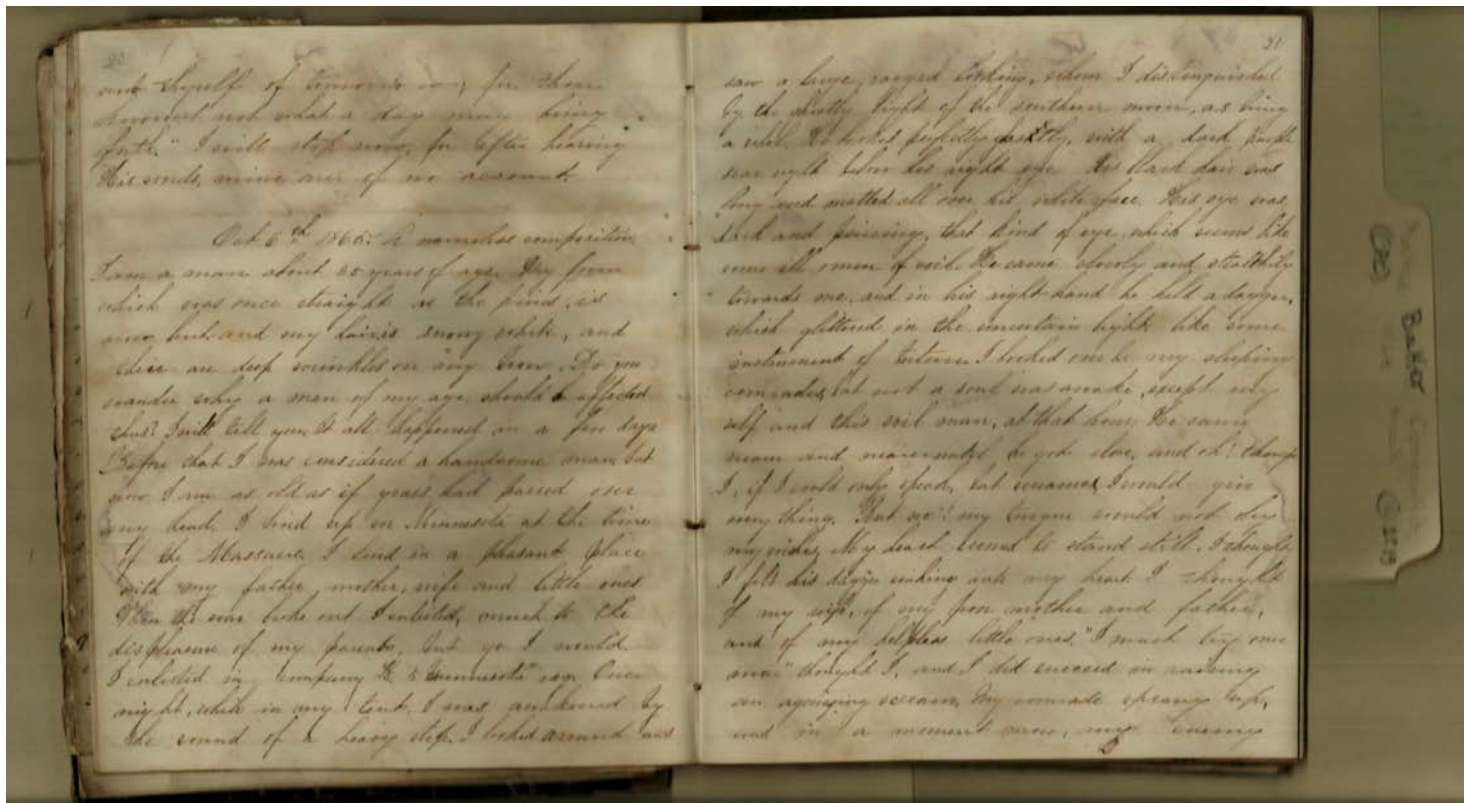 20
not thyself of tomorrow, for thou
knowest not what a day may bring
forth." I will stop now, for after hearing
His words, mine are of no account.
Oct 6th 1865. A nameless composition
I am a man about 25 years of age. My form
which was once straight as the pines, is
now bent and my hair is snowy white, and
there are deep wrinkles on my brow. Do you
wonder why a man of my age should be affected
thus? I will tell you. It all happened in a few days
Before that I was considered a handsome man but
now I am as old as if years had passed over
my head. I lived up in Minnesota at the time
of the Massacre. I lived in a pleasant place
with my father, mother, wife and little ones
When the war broke out I enlisted, much to the
displeasure of my parents, but go I would.
I enlisted in Company 5 Minnesota One
night, while in my tent, I was awakened by
the sound of a heavy step. I looked around and
21
saw a large, ragged looking, whom I distinguished
by the light of the southern moon, as being
a He looked perfectly ghastly, with a dark purple
scar right below his right eye. His black hair was
long and matted all over his white face. His eye was
dark and piercing, that kind of eye which seems like
some ill omen of evil. He came slowly and stealthily
towards me, and in his right hand he held a dagger,
which glittered in the uncertain light like some
instrument of torture. I looked over to my sleeping
comrades, but not a soul was awake, except my
self and this evil man, at that hour. He came
nearer and nearer until he got close, and oh! thought
I, if I could only speak, but I would give
every thing. But no! my tongue would not obey
my wishes. My heart seemed to stand still. I thought
I felt his dagger sinking into my heart. I thought
of my wife, of my poor mother and father,
and of my helpless little ones. "I must try once
more" thought I, and I did succeed in raising
an agonizing scream. My comrade sprang up,
and in a moment more, my enemy
Baker